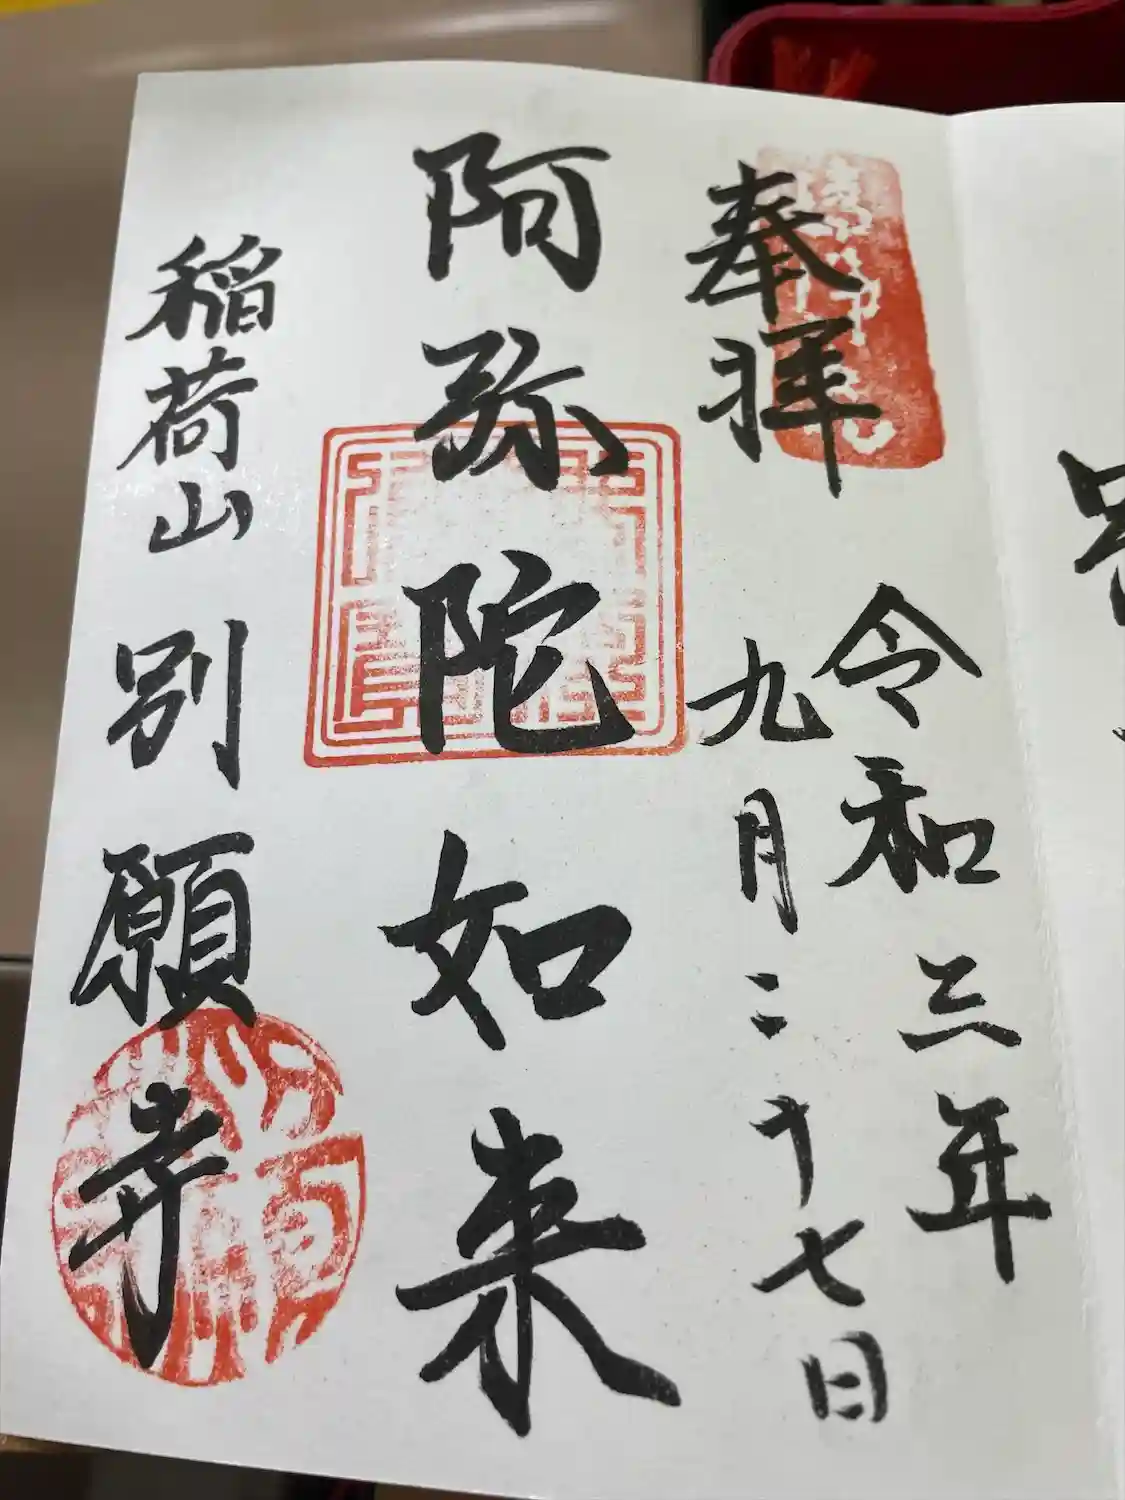 奉拝
令和三年
九月二十七日
阿弥陀如来
稲荷山
別願寺